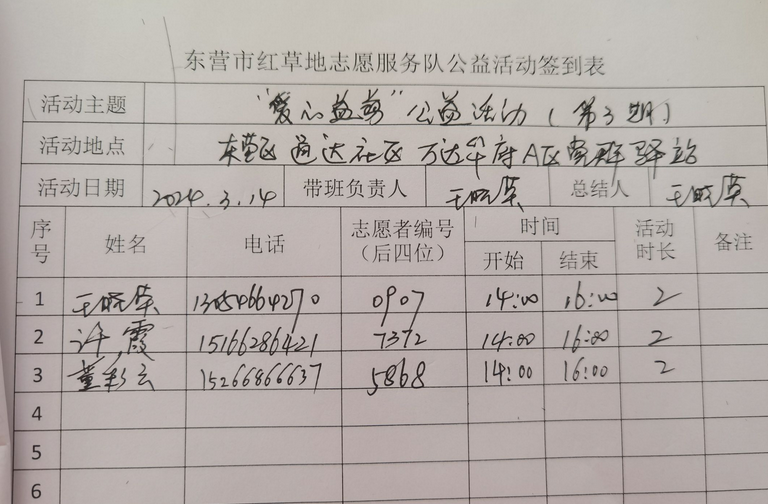 东营市红草地志愿服务队公益活动签到表
活动主题 “爱心益剪”公益活动（第3期）
活动地点 东营区通达社区万达华府A区党群驿站
活动日期 2024.3.14 带班负责人 王晓荣 总结人 王晓荣
序号 姓名 电话 志愿者编号（后四位） 时间 开始 结束 活动时长 备注
1 王晓荣 13054664270 0907 14:00 16:00 2
2 许霞 15166286421 7372 14:00 16:00 2
3 董彩云 15266866637 5868 14:00 16:00 2
4
5
6